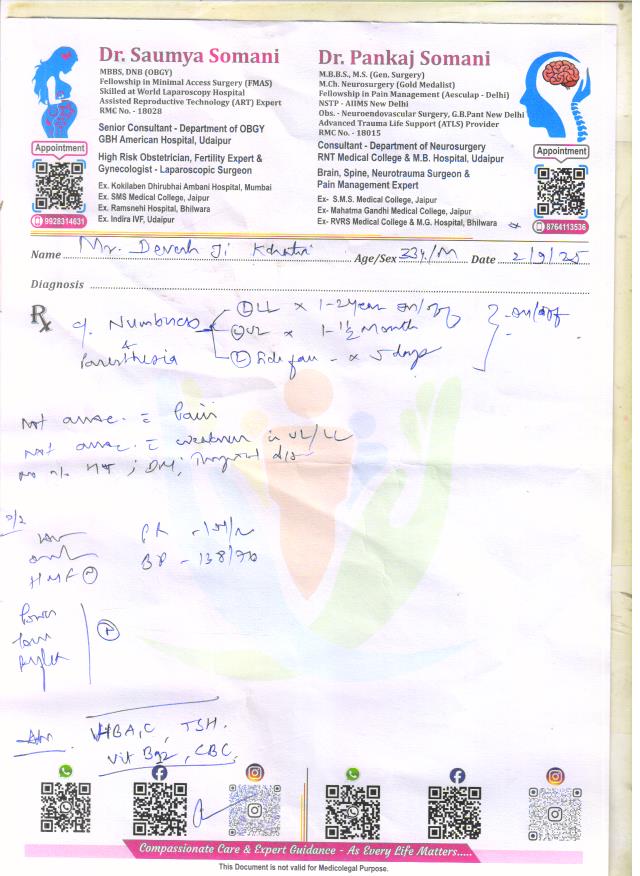 Dr. Saumya Somani
MBBS, DNB (OBGY)
Fellowship in Minimal Access Surgery (FMAS)
Skilled at World Laparoscopy Hospital
Assisted Reproductive Technology (ART) Expert
RMC No. - 18028
Senior Consultant - Department of OBGY
GBH American Hospital, Udaipur
High Risk Obstetrician, Fertility Expert &
Gynecologist - Laparoscopic Surgeon
Ex. Kokilaben Dhirubhai Ambani Hospital, Mumbai
Ex. SMS Medical College, Jaipur
Ex. Ramsnehi Hospital, Bhilwara
Ex. Indira IVF, Udaipur
Appointment
9928314631
Dr. Pankaj Somani
M.B.B.S., M.S. (Gen. Surgery)
M.Ch. Neurosurgery (Gold Medalist)
Fellowship in Pain Management (Aesculap - Delhi)
NSTP - AIIMS New Delhi
Obs. - Neuroendovascular Surgery, G.B.Pant New Delhi
Advanced Trauma Life Support (ATLS) Provider
RMC No. - 18015
Consultant - Department of Neurosurgery
RNT Medical College & M.B. Hospital, Udaipur
Brain, Spine, Neurotrauma Surgeon &
Pain Management Expert
Ex- S.M.S. Medical College, Jaipur
Ex- Mahatma Gandhi Medical College, Jaipur
Ex- RVRS Medical College & M.G. Hospital, Bhilwara
Appointment
8764113536
Name Mr. Devesh Ji Khatri Age/Sex 33y/M Date 2/9/25
Diagnosis
Rx
c/o Numbness & Paresthesia
(L) LL x 1-2 year on/off
UL x 1-1½ month
(L) Side face - x 5 days
on/off
Not assoc. c pain
Not assoc. c weakness in UL/LL
no h/o HT, DM, Thyroid d/s
PR
BP - 138/70
HMF (N)
Power
Tone
Reflex
(N)
Adv
HBA1C, TSH.
Vit B12, CBC,
Compassionate Care & Expert Guidance - As Every Life Matters.....
This Document is not valid for Medicolegal Purpose.